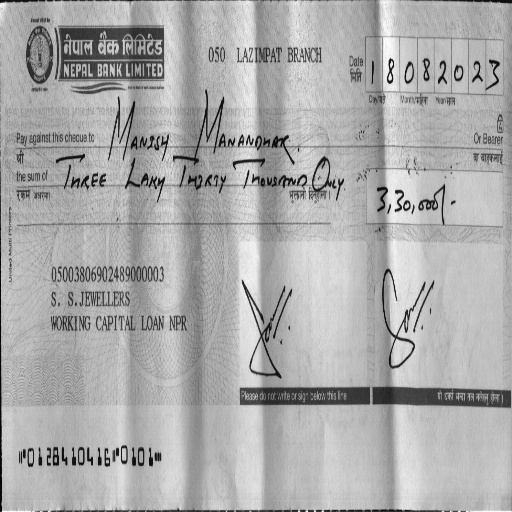 नेपाल बैंक लिमिटेड
NEPAL BANK LIMITED
050 LAZIMPAT BRANCH
Date मिति 18082023
Day/गते Month/महिना Year/साल
Pay against this cheque to MANISH MANANDHAR Or Bearer
श्री वा वाहकलाई
the sum of THREE LAKH THIRTY THOUSAND ONLY.
रकम अक्षरमा भुक्तानी दिनुहोला । 3,30,000/-
05003806902489000003
S. S.JEWELLERS
WORKING CAPITAL LOAN NPR
Please do not write or sign below this line
⑈01284104⑈16⑈0101⑈